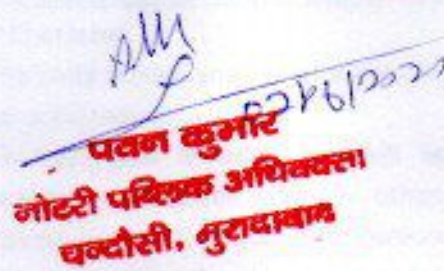 पवन कुमार
नोटरी पब्लिक अधिवक्ता
चन्दौसी, मुरादाबाद